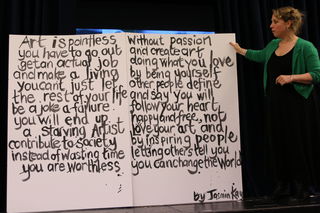 Art is pointless
you have to go out
get an actual job
and make a living
you cant just let
the rest of your life
be a joke a failure.
you will end up
a starving Artist
contribute to society
instead of wasting time
you are worthless.
Without passion
and create art
doing what you love
by being yourself
other people define
and say you will
follow your heart
happy and free, not
love your art, and
by inspiring people
letting others tell you
you can change the World
by Jasmin Kay